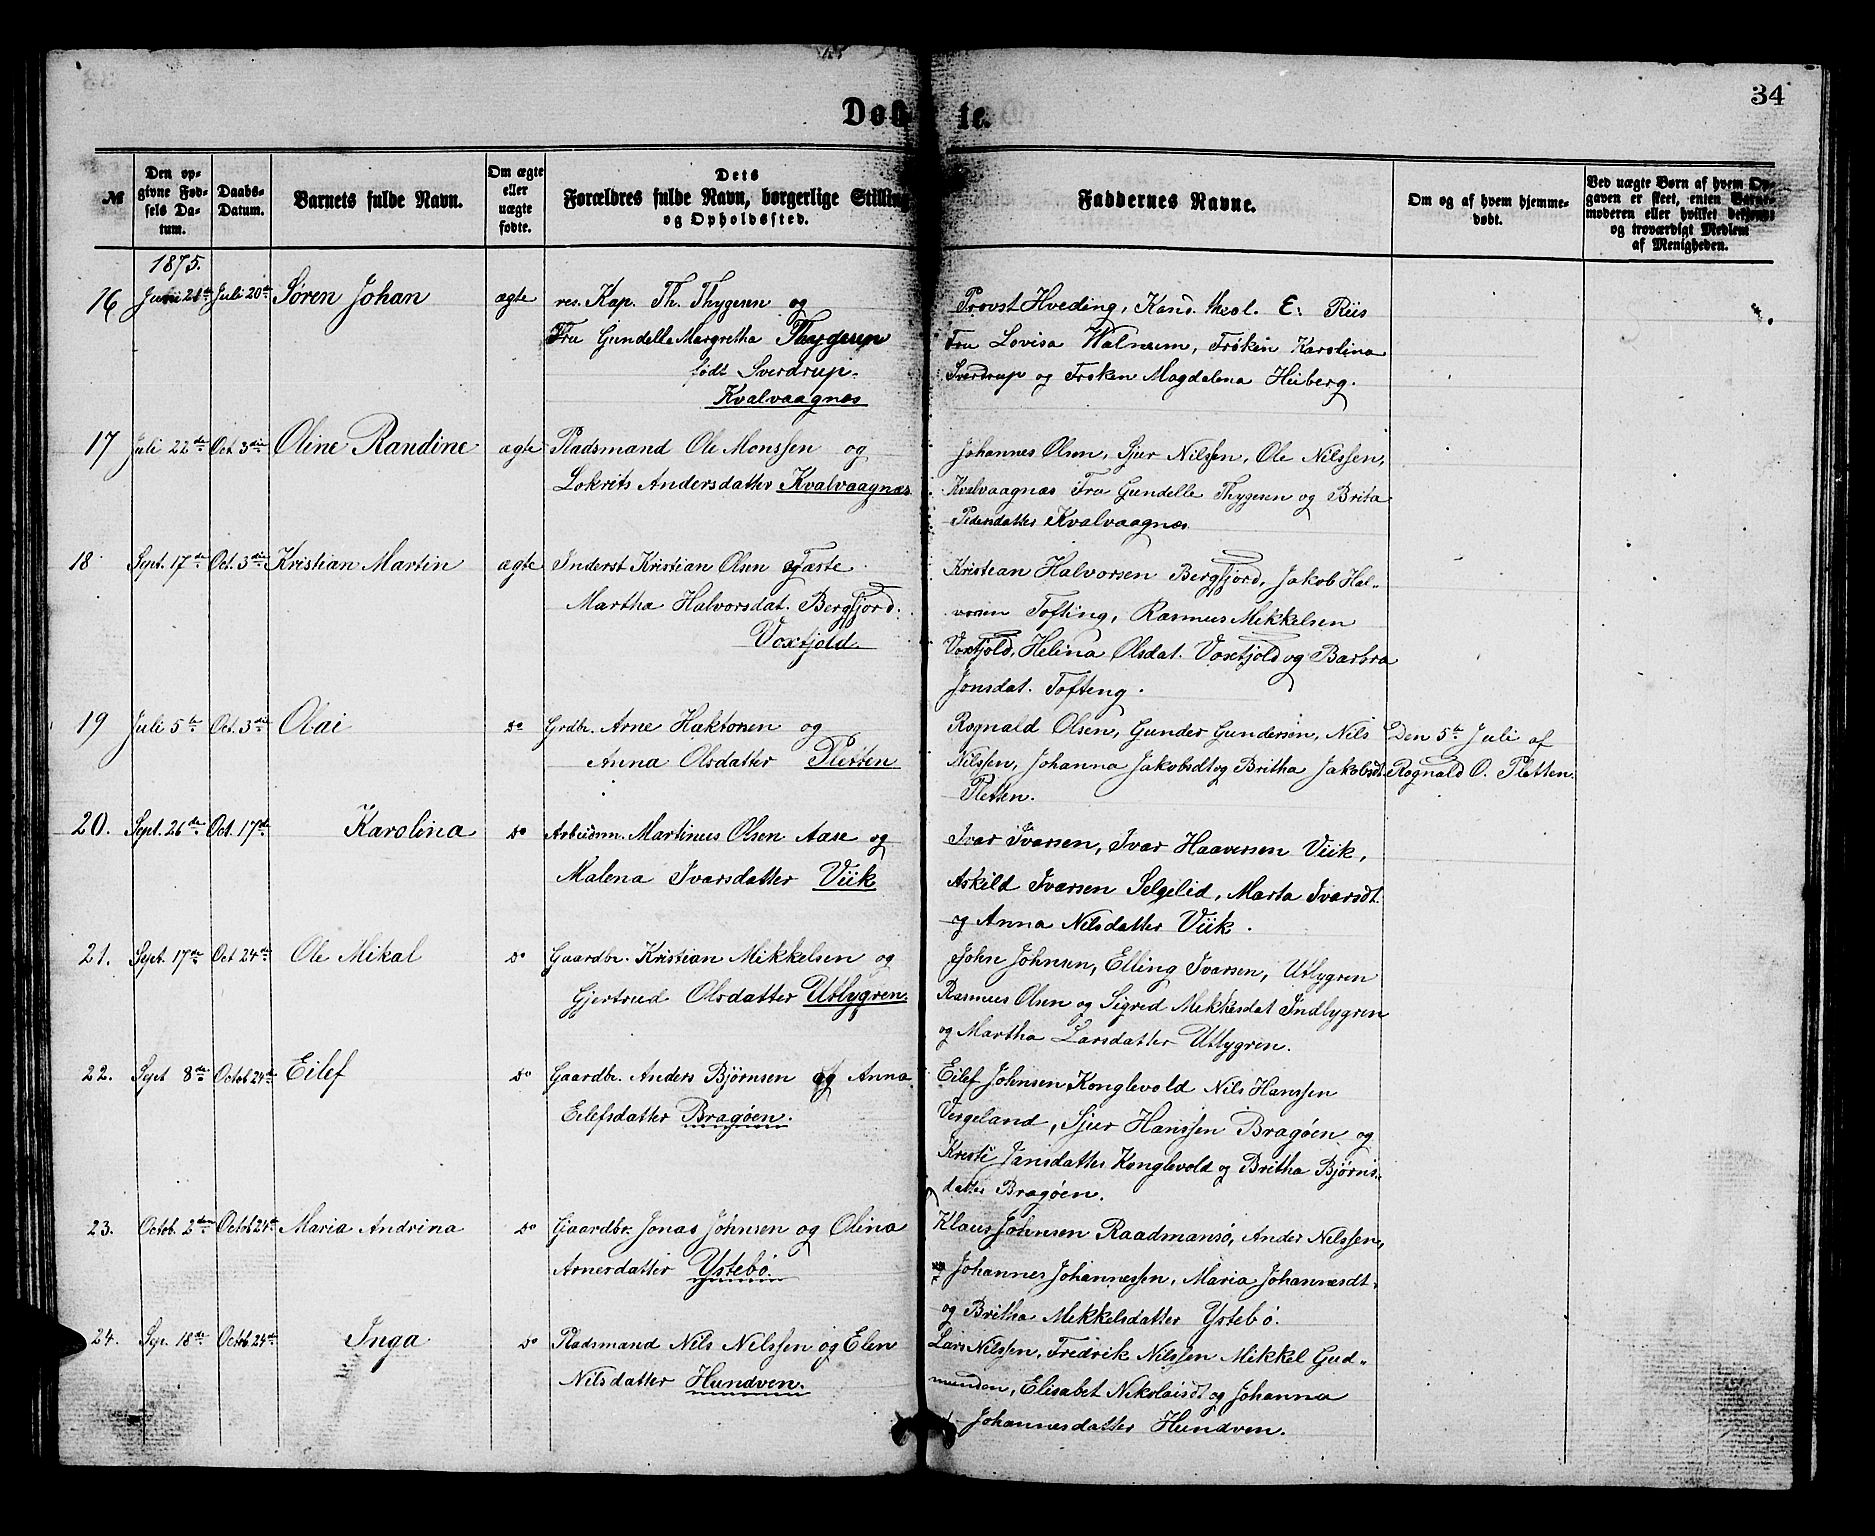 34
Døbte.
№
Den op-
givne Fød-
sels Da-
tum.
Daabs-
Datum.
Barnets fulde Navn.
Om ægte
eller
uægte
fødte.
Dets
Forældres fulde Navn, borgerlige Stilling
og Opholdssted.
Faddernes Navne.
Om og af hvem hjemme-
døbt.
Ved uægte Børn af hvem Op-
gaven er skeet, enten Barne-
moderen eller hvilket bekjendt
og troværdigt Medlem
af Menigheden.
1875.
16 Juni 21de Juli 20de Søren Johan ægte res. Kap. Th. Thygesen og
Fru Gundelle Margretha Thygesen
født Sverdrup.
Kvalvaagnæs
Provst Hveding, Kand. theol. E. Riis
Fru Lovisa Walnum, Frøken Karolina
Sverdrup og Frøken Magdalena Heiberg.
17 Juli 22de Oct. 3die Oline Randine ægte Pladsmand Ole Monssen og
Lokrits Andersdatter Kvalvaagnæs
Johannes Olsen, Sjur Nilssen, Ole Nilssen,
Kvalvaagnæs Fru Gundelle Thygesen og Brita
Pedersdatter Kvalvaagnæs
18 Sept. 17de Oct. 3die Kristian Martin ægte Inderst Kristian Olsen Tæste
Martha Halvorsdat. Bergfjord.
Voxfjold.
Kristian Halvorsen Bergfjord, Jakob Hal-
vorsen Tofting, Rasmus Mikkelsen
Voxfjold, Helina Olsdat. Voxfjold og Barbra
Jonsdat. Tofting.
19 Juli 5te Oct. 3die Olai Do Grdbr. Arne Haktorsen og
Anna Olsdatter Pletten
Rognald Olsen, Gunder Gundersøn, Nils
Nilssen, Johanna Jakobsdt og Britha Jakobsdt
Pletten.
Den 5te Juli af
Rognald O. Pletten.
20. Sept. 26de Oct. 17de Karolina Do Arbeidsm. Martinus Olsen Aase og
Malena Ivarsdatter Viik
Ivar Ivarsen, Ivar Haaversen Viik,
Askild Ivarsen Selgelid, Marta Ivarsdt
og Anna Nilsdatter Viik.
21. Sept. 17de Oct 24de Ole Mikal Do Gaardbr. Kristian Mikkelsen og
Gjertrud Olsdatter Utlygren.
Johse Johnsen, Elling Ivarsen, Utlygren
Rasmus Olsen og Sigred Mikkesdat Indlygren
og Martha Larsdatter Utlygren.
22. Sept 8de Octob 24de Eilef Do Gaardbr. Anders Bjørnsen og Anna
Eilefsdatter Bragøen.
Eilef Johnsen Konglevold Nils Hanssen
Vergeland, Sjur Hanssen Bragøen og
Kristi Jansdatter Konglevold og Britha Bjørns-
datter Bragøen.
23. Octob. 2den Octob 24de Maria Andrina Do Gaardbr. Jonas Johnsen og Olina
Arnesdatter Ystebø.
Klaus Johnsen Raadmansø, Ander Nilssen,
Johannes Johannessen, Maria Johannesdt.
og Britha Mekkelsdatter Ystebø.
24. Sep. 18de Octob. 24de Inga Do Pladsmand Nils Nilssen og Elen
Nilsdatter Hundven.
Lars Nilssen, Fredrik Nilssen Mikkel Gud-
munden, Elisabet Nikolaisdt og Johanna
Johannesdatter Hundven.